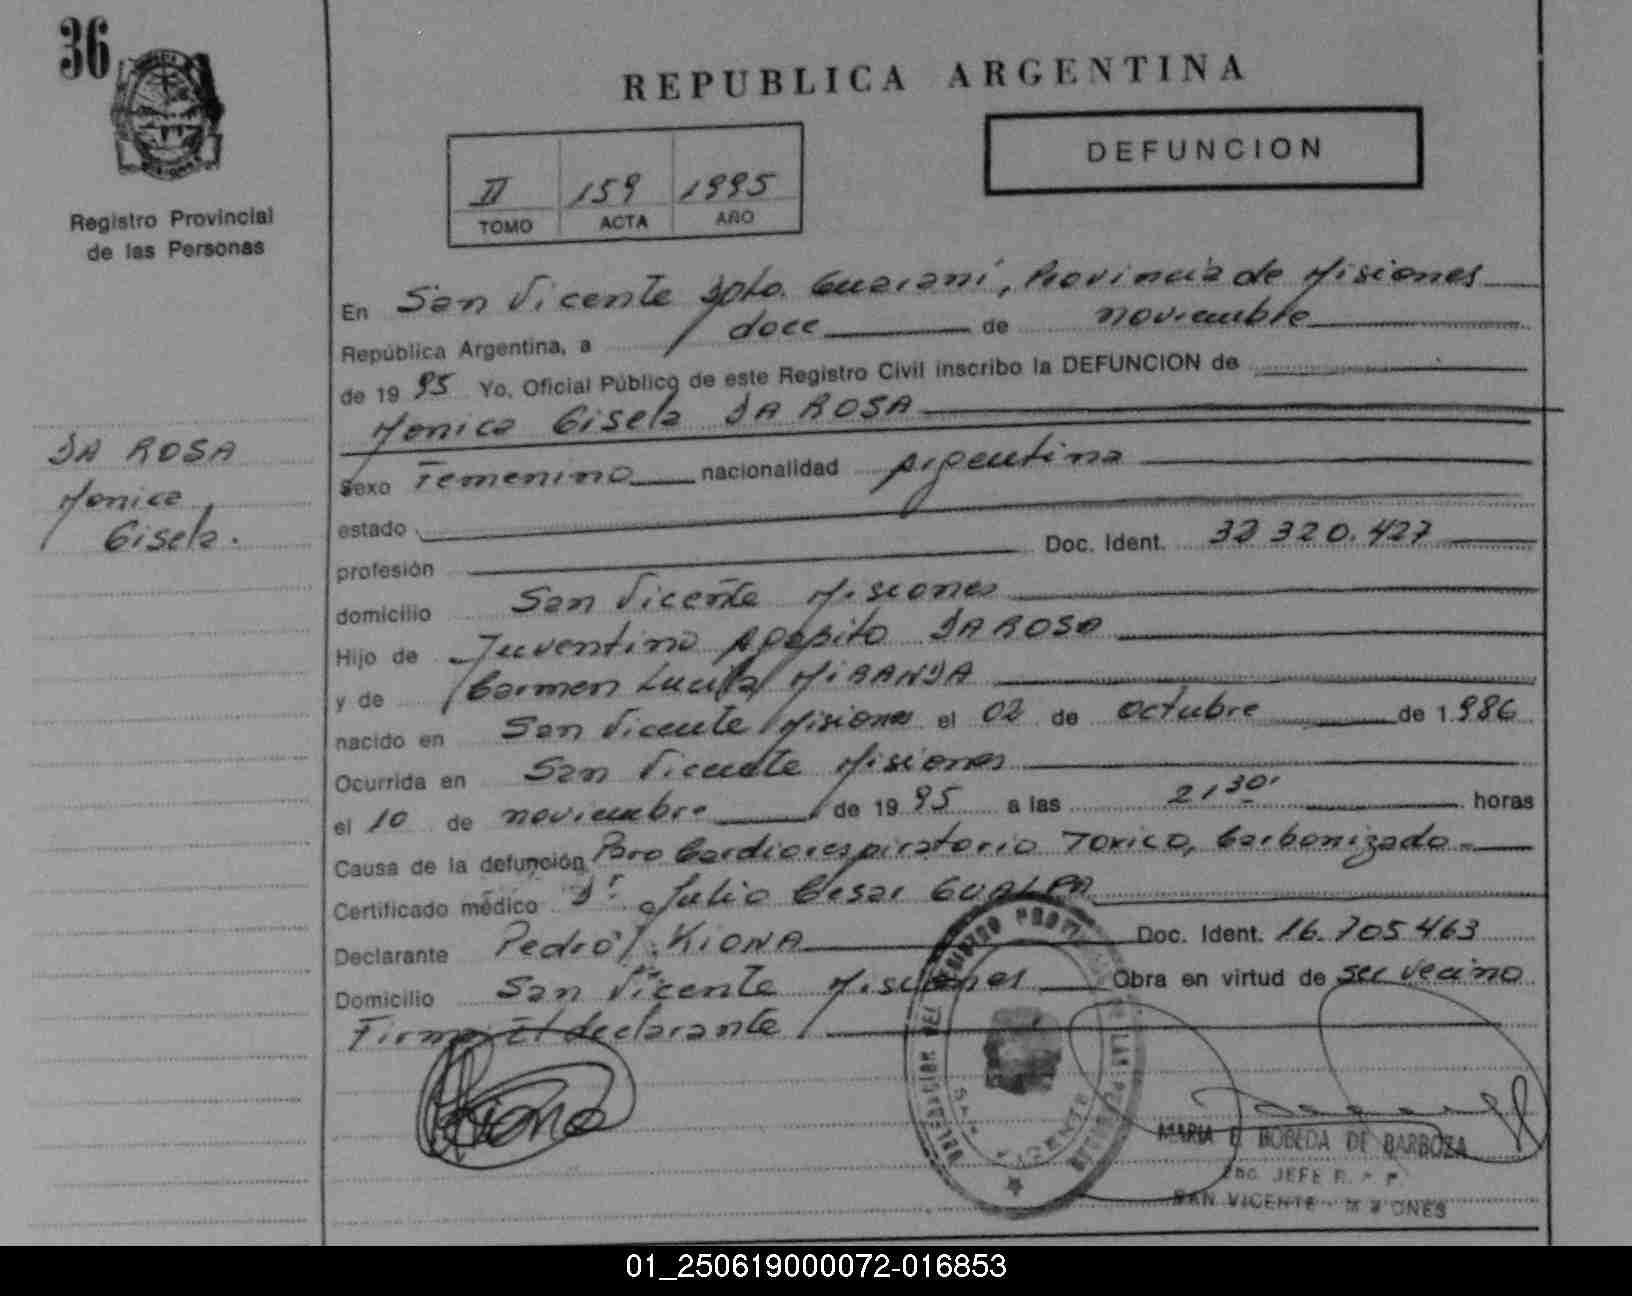 36
REPUBLICA ARGENTINA
DEFUNCION
II 159 1995
TOMO ACTA AÑO
Registro Provincial
de las Personas
En San Vicente Dpto. Guaraní, Provincia de Misiones
República Argentina, a doce de noviembre
de 1995 Yo, Oficial Público de este Registro Civil inscribo la DEFUNCION de
Monica Gisela DA ROSA
DA ROSA
Monica
Gisela.
Sexo Femenino nacionalidad Argentina
estado
profesión Doc. Ident. 320.427
domicilio San Vicente Misiones
Hijo de Juventino Agapito DA ROSA
y de Carmen Lucila MIRANDA
nacido en San Vicente Misiones el 02 de octubre de 1.986
Ocurrida en San Vicente Misiones
el 10 de noviembre de 1995 a las 21,30' horas
Causa de la defunción Paro Cardiorespiratorio Toxico, Carbonizado.
Certificado médico Dr. Julio Cesar GUALPA
Declarante Pedro KIONA Doc. Ident. 16.705.463
Domicilio San Vicente Misiones Obra en virtud de ser vecino
Firma El declarante
Kiona
DELEGACION DEL REGISTRO PROVINCIAL DE LAS PERSONAS
SAN VICENTE
MARIA E. BOBEDA DE BARBOZA
2do. JEFE R. P. P.
SAN VICENTE - MISIONES
01_250619000072-016853